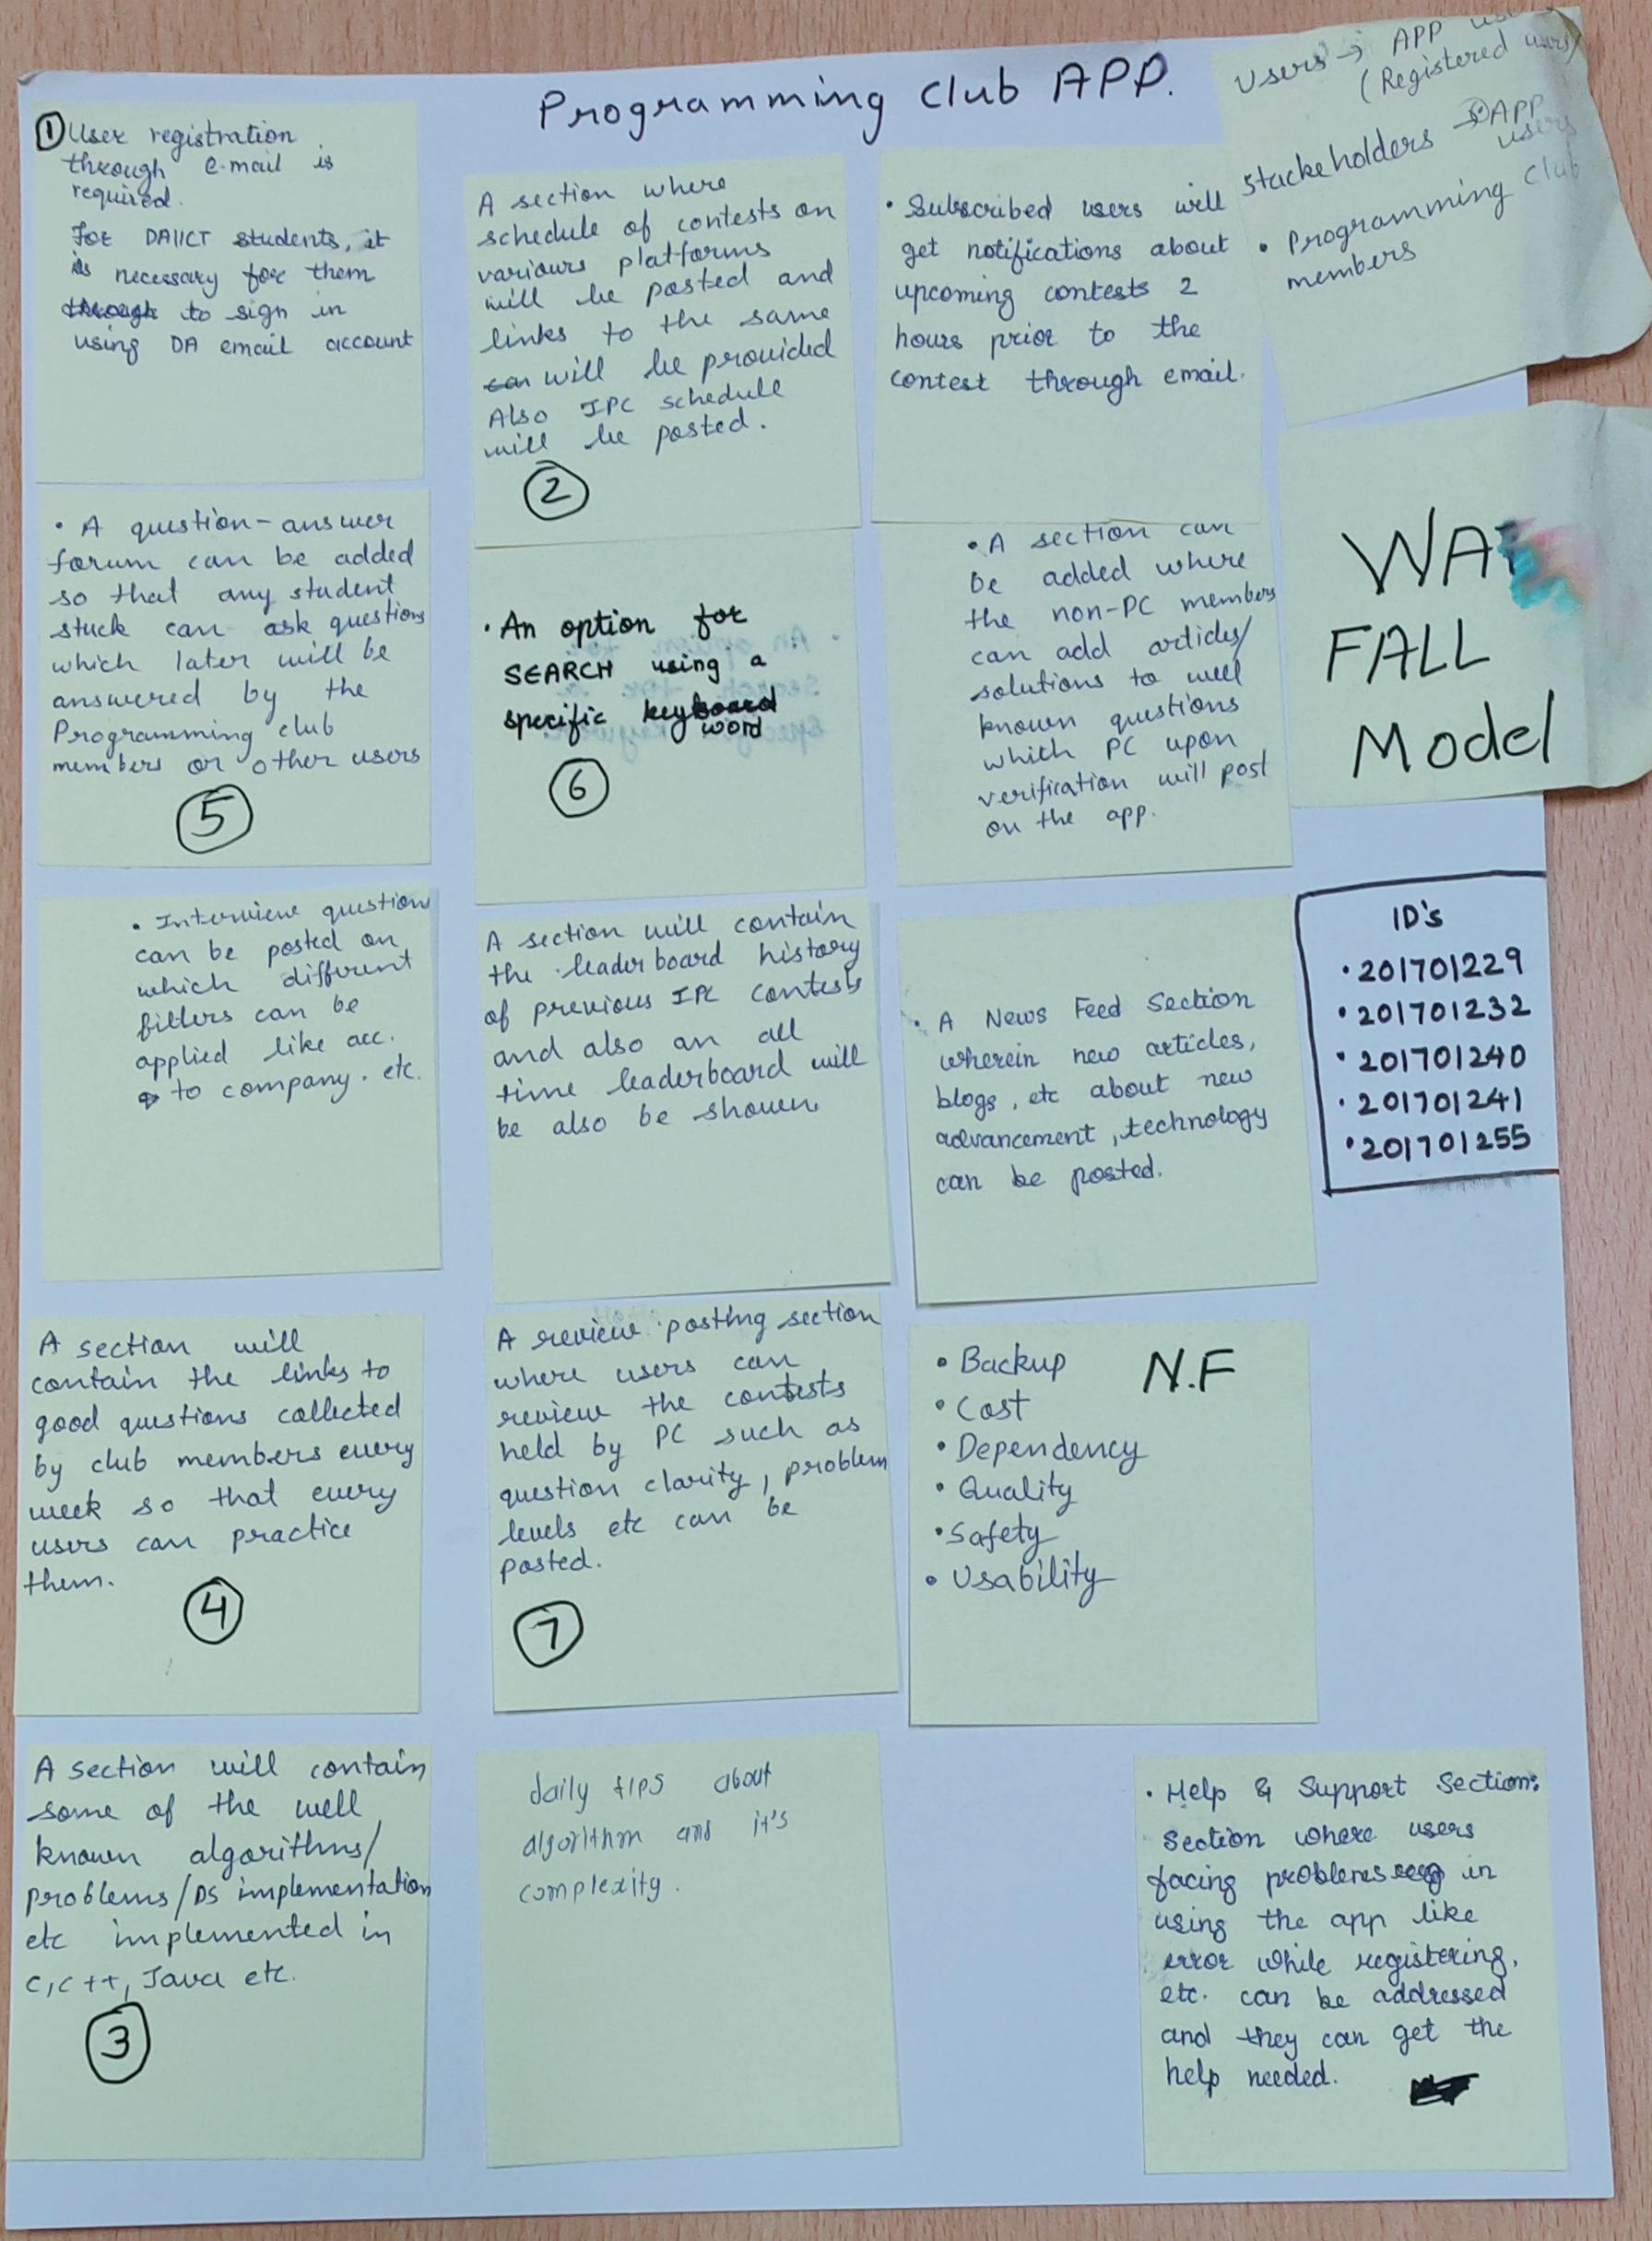 Programming Club APP.
Users → APP
(Registered users)
Stackeholders → APP
users
• Programming Club
members
① User registration
through e-mail is
required.
For DAIICT students, it
is necessary for them
through to sign in
using DA email account
A section where
schedule of contests on
variours platforms
will be posted and
links to the same
can will be provided
Also IPC schedule
will be posted.
②
• Subscribed users will
get notifications about
upcoming contests 2
hours prior to the
contest through email.
• A question-answer
forum can be added
so that any student
stuck can ask questions
which later will be
answered by the
Programming club
members or other users
⑤
• An option for
SEARCH using a
specific keyboard
word
⑥
• A section can
be added where
the non-PC members
can add articles/
solutions to well
known questions
which PC upon
verification will post
on the app.
WA
FALL
Model
• Interview question
can be posted on
which different
filters can be
applied like acc.
to company. etc.
A section will contain
the leaderboard history
of previous IPC contests
and also an all
time leaderboard will
be also be shown
• A News Feed Section
wherein new articles,
blogs, etc about new
advancement, technology
can be posted.
ID's
• 201701229
• 201701232
• 201701240
• 201701241
• 201701255
A section will
contain the links to
good questions collected
by club members every
week so that every
users can practice
them.
④
A review posting section
where users can
review the contests
held by PC such as
question clarity, problem
levels etc can be
posted.
⑦
N.F
• Backup
• Cost
• Dependency
• Quality
• Safety
• Usability
A section will contain
some of the well
known algorithms/
problems/DS implementation
etc implemented in
C, C++, Java etc.
③
daily tips about
algorithm and it's
complexity.
• Help & Support Section:
Section where users
facing problems in
using the app like
error while registering,
etc. can be addressed
and they can get the
help needed.